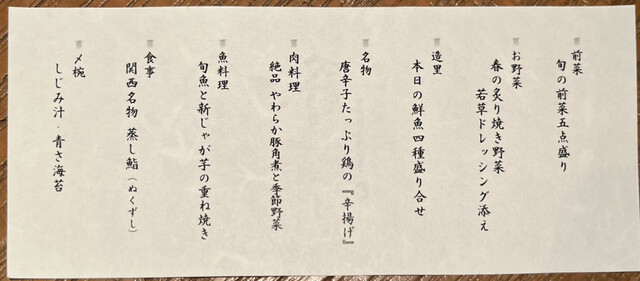 前菜
旬の前菜五点盛り
お野菜
春の炙り焼き野菜
若草ドレッシング添え
造里
本日の鮮魚四種盛り合せ
名物
唐辛子たっぷり鶏の『辛揚げ』
肉料理
絶品 やわらか豚角煮と季節野菜
魚料理
旬魚と新じゃが芋の重ね焼き
食事
関西名物 蒸し鮨(ぬくずし)
〆椀
しじみ汁・青さ海苔